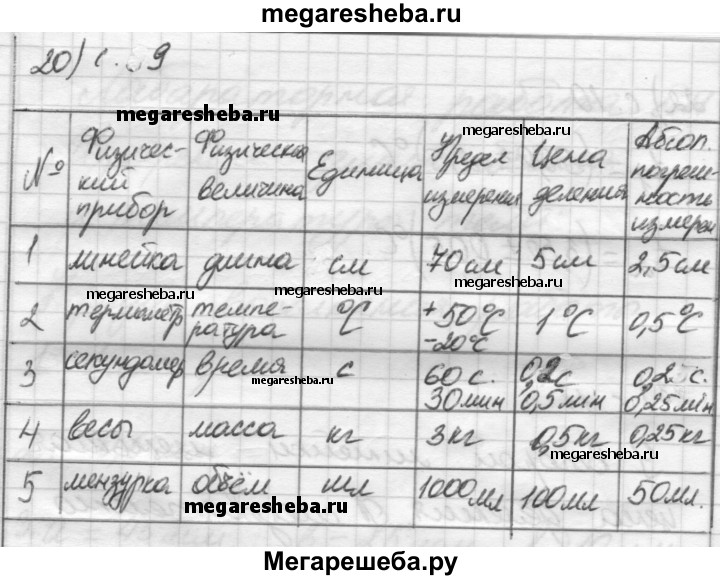 megaresheba.ru
20) с. 9
megaresheba.ru
№ Физичес-кий прибор Физическая величина Единица Предел измерения Цена деления Абсол. погреш-ность измерен
megaresheba.ru
1 линейка длина см 70 см 5 см 2,5 см
megaresheba.ru megaresheba.ru
2 термометр темпе-ратура °C +50°C -20°C 1°C 0,5°C
3 секундомер время с 60 с. 30 мин 0,2с 0,5 мин с. 0,25 мин
megaresheba.ru
4 весы масса кг 3 кг 0,5 кг 0,25 кг
megaresheba.ru
5 мензурка объём мл 1000 мл 100 мл 50 мл.
megaresheba.ru
Мегарешеба.ру